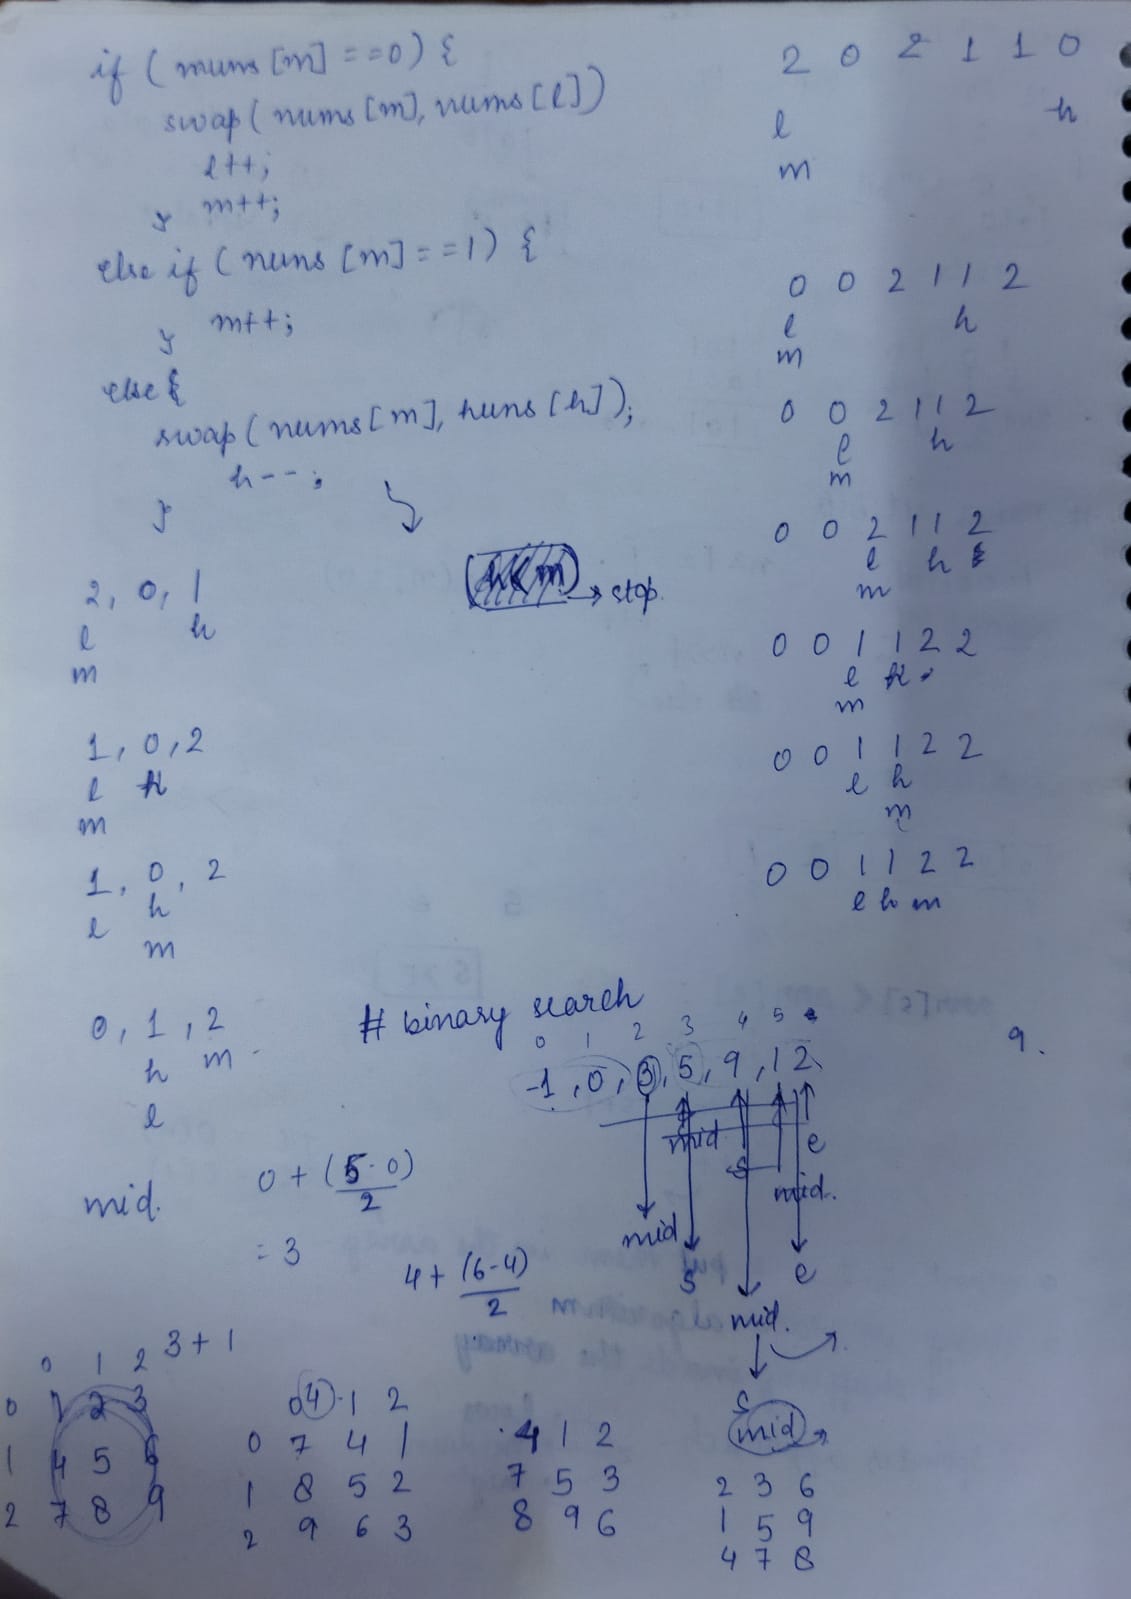 if ( nums [m] == 0) {
swap( nums [m], nums [l])
l++;
m++;
}
else if ( nums [m] == 1) {
m++;
}
else {
swap ( nums [m], nums [h]);
h--;
}
(h<m) → stop.
2, 0, 1
l h
m
1, 0, 2
l h
m
1, 0, 2
l h
m
0, 1, 2
h m
l
2 0 2 1 1 0
l h
m
0 0 2 1 1 2
l h
m
0 0 2 1 1 2
l h
m
0 0 2 1 1 2
l h
m
0 0 1 1 2 2
l h
m
0 0 1 1 2 2
l h
m
0 0 1 1 2 2
l h m
# binary search
0 1 2 3 4 5
-1, 0, 3, 5, 9, 12
9.
mid e
s mid.
mid s e
mid.
s
mid
mid. 0 + (5-0)
2
= 3
4 + (6-4)
2
3 + 1
0 1 2
0 1 2 3
1 4 5 6
2 7 8 9
0 4 1 2
0 7 4 1
1 8 5 2
2 9 6 3
4 1 2
7 5 3
8 9 6
2 3 6
1 5 9
4 7 8